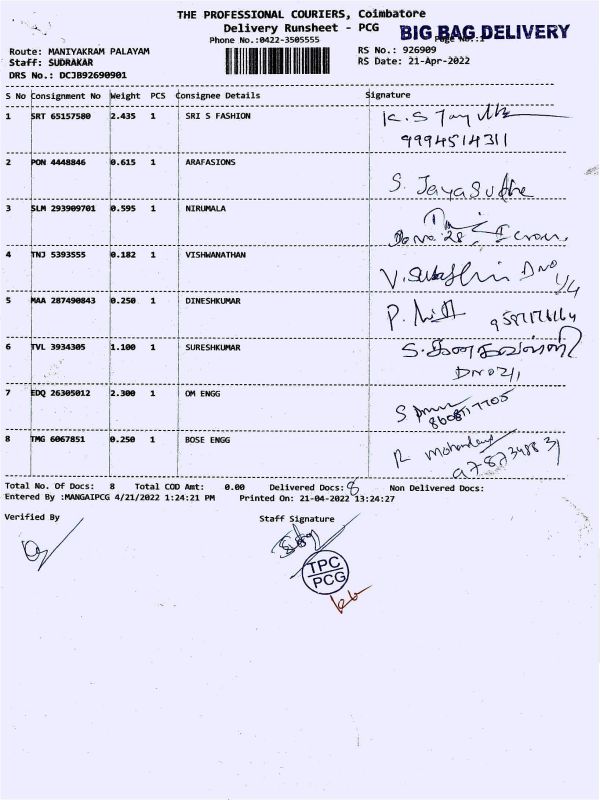 THE PROFESSIONAL COURIERS, Coimbatore
Delivery Runsheet - PCG BIG BAG DELIVERY
Phone No.:0422-3505555 Page No.:1
Route: MANIYAKRAM PALAYAM RS No.: 926909
Staff: SUDRAKAR RS Date: 21-Apr-2022
DRS No.: DCJB92690901
S No Consignment No Weight PCS Consignee Details Signature
1 SRT 65157580 2.435 1 SRI S FASHION K.S
9994514311
2 PON 4448846 0.615 1 ARAFASIONS
S. Jayasudha
3 SLM 293909701 0.595 1 NIRUMALA
4 TNJ 5393555 0.182 1 VISHWANATHAN
V. DNo
1/4
5 MAA 287490843 0.250 1 DINESHKUMAR P.
6 TVL 3934305 1.100 1 SURESHKUMAR
DNO 2/1
7 EDQ 26305012 2.300 1 OM ENGG S
8 TMG 6067851 0.250 1 BOSE ENGG R
Total No. Of Docs: 8 Total COD Amt: 0.00 Delivered Docs: 8 Non Delivered Docs:
Entered By :MANGAIPCG 4/21/2022 1:24:21 PM Printed On: 21-04-2022 13:24:27
Verified By Staff Signature
TPC
PCG